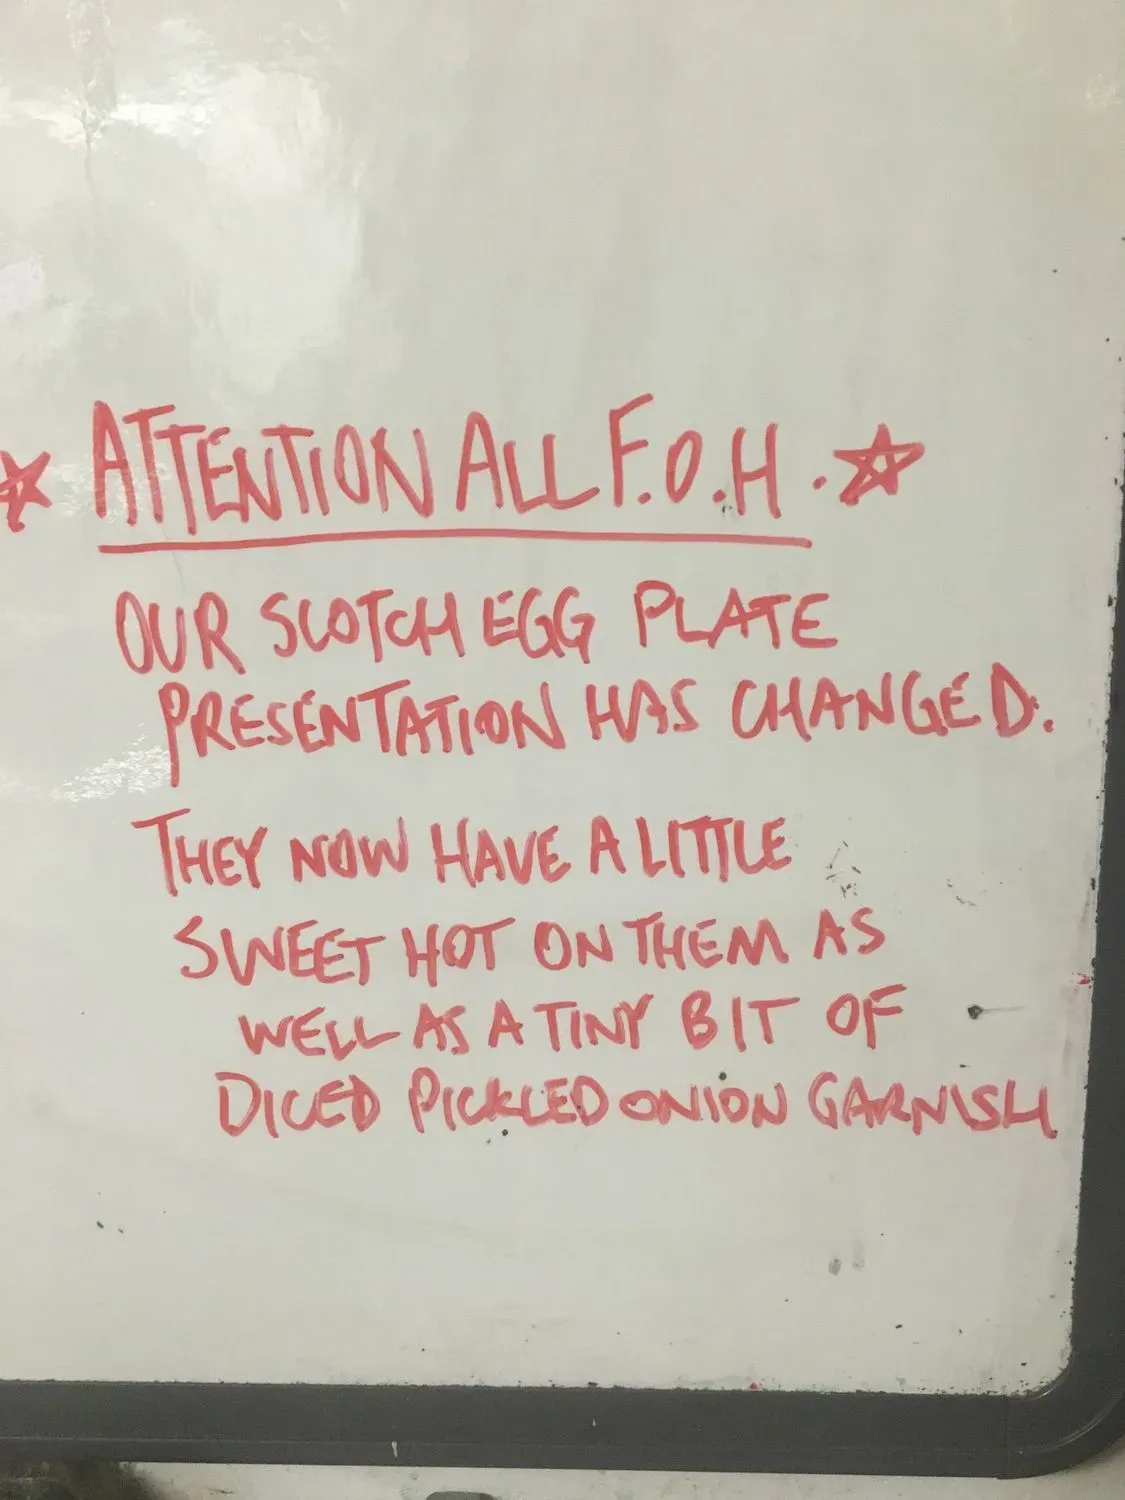 ATTENTION ALL F.O.H.
OUR SCOTCH EGG PLATE
PRESENTATION HAS CHANGED.
THEY NOW HAVE A LITTLE
SWEET HOT ON THEM AS
WELL AS A TINY BIT OF
DICED PICKLED ONION GARNISH